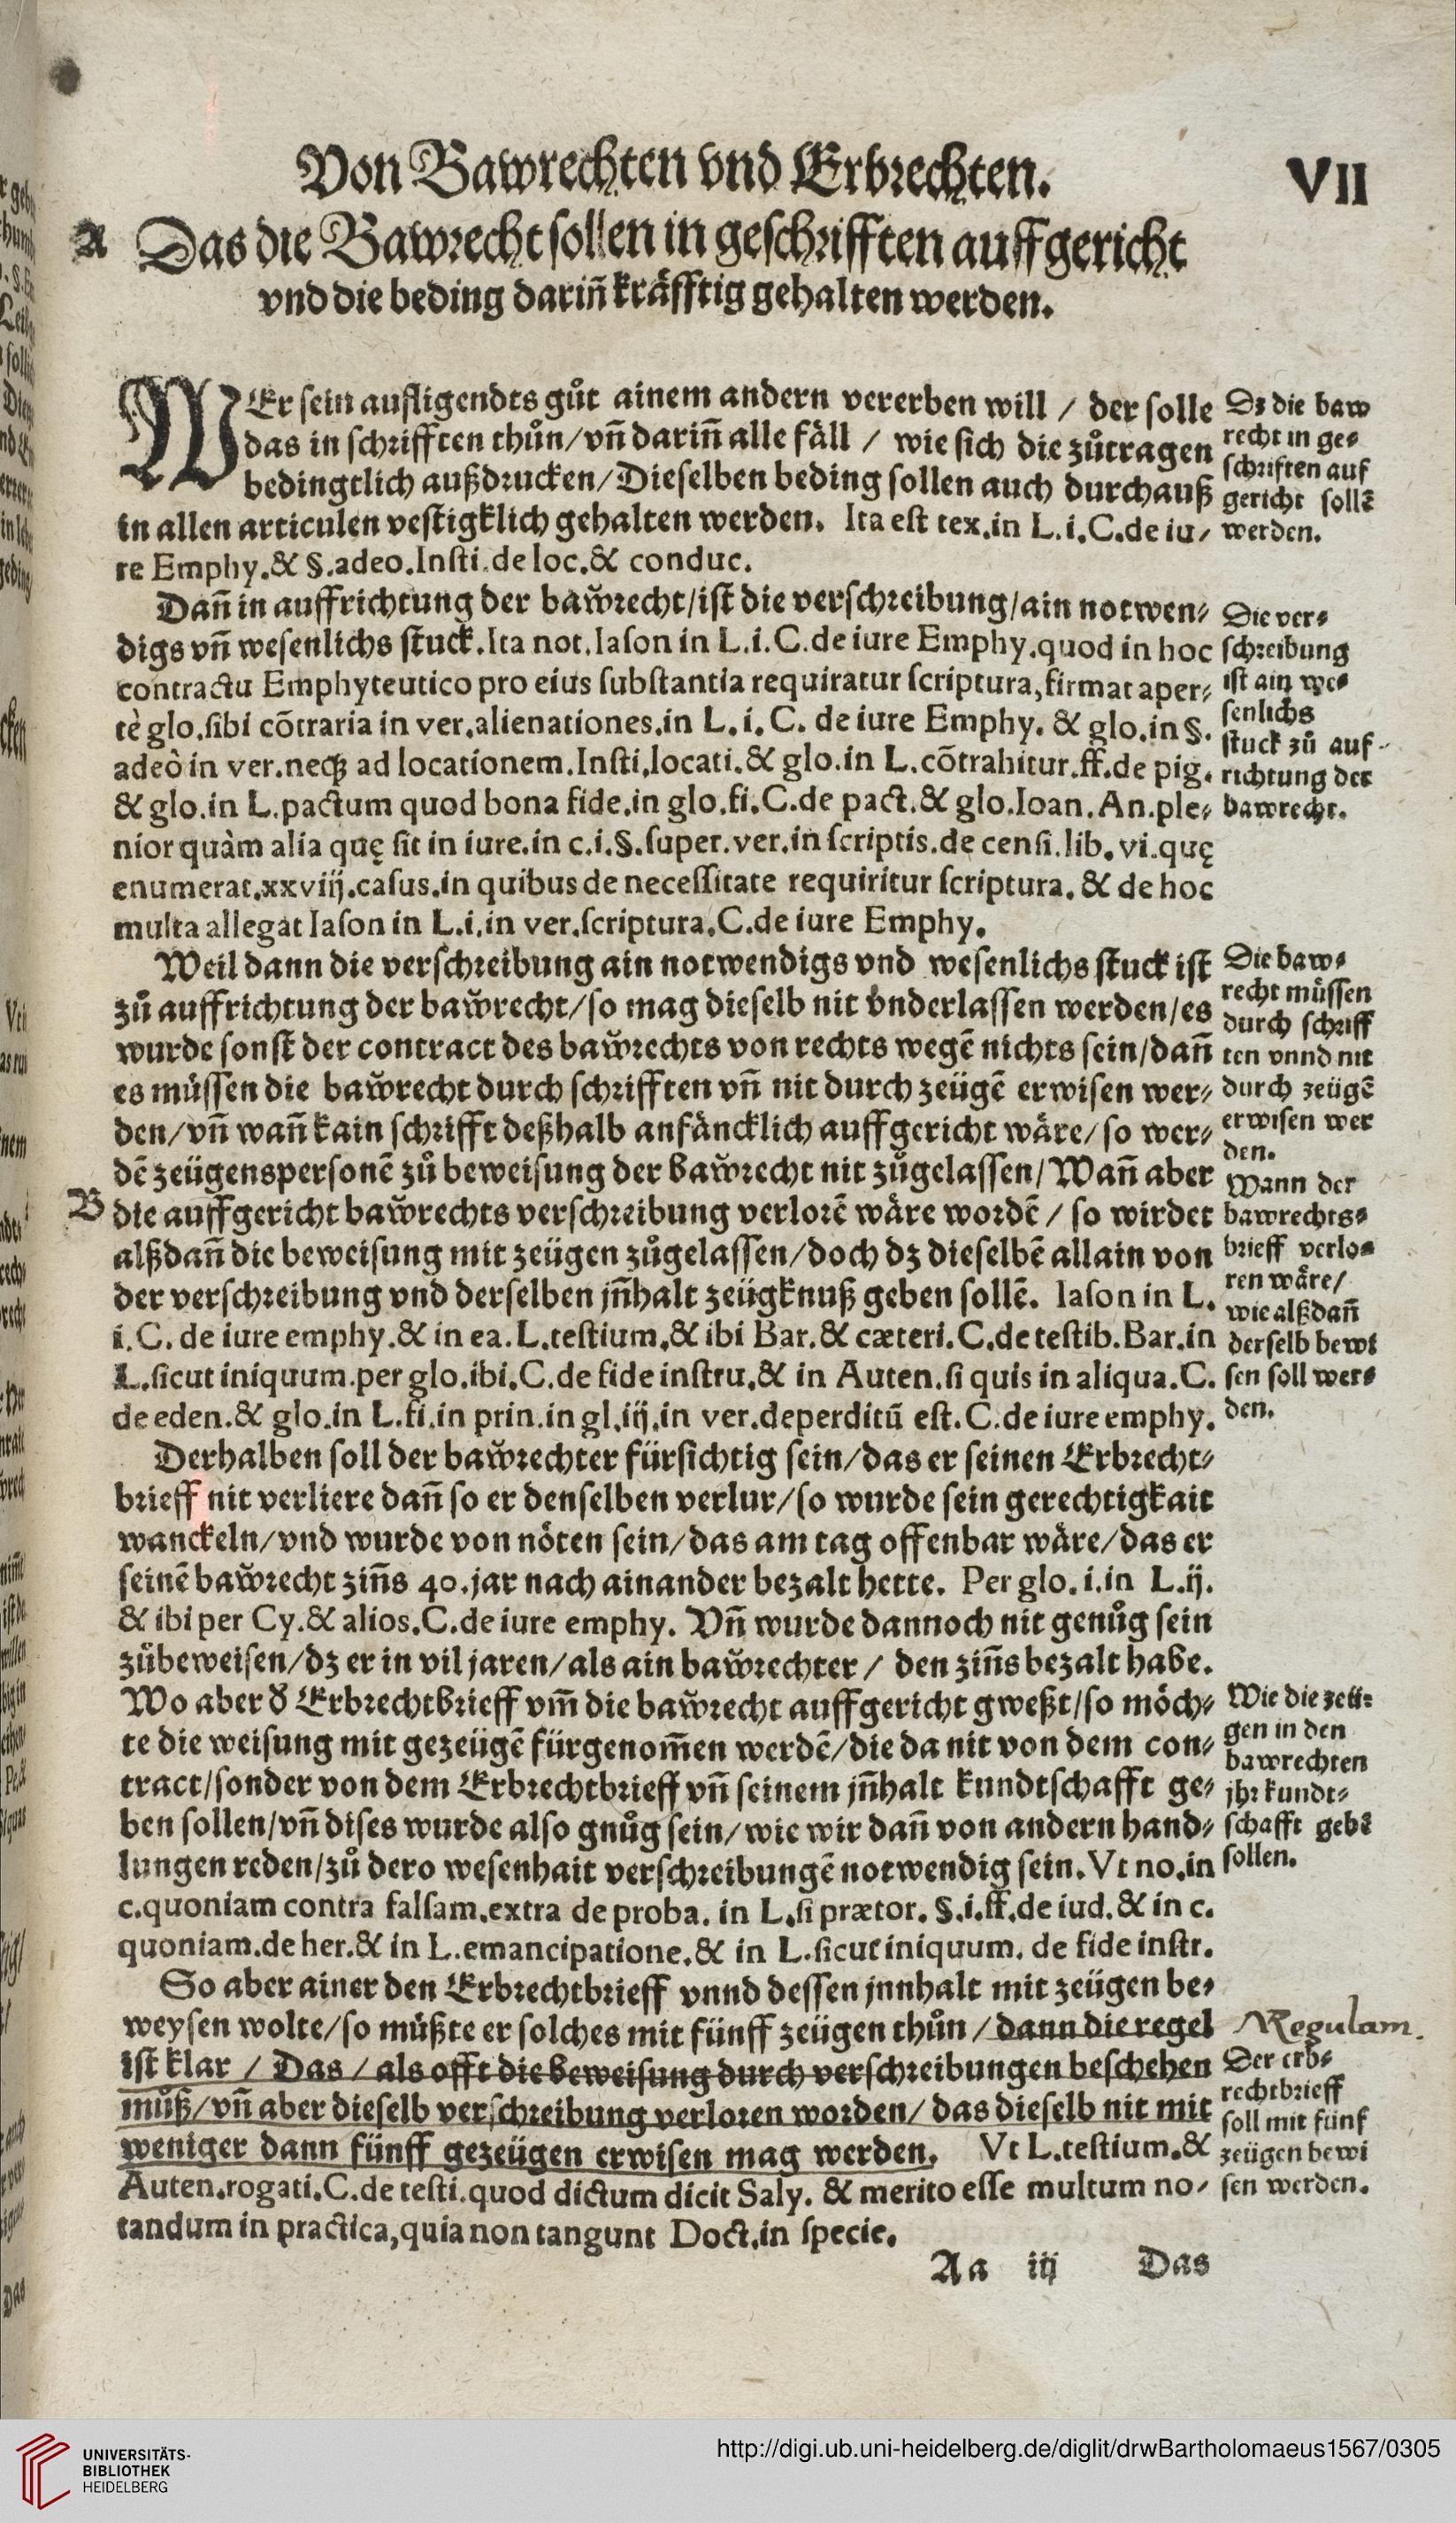 Von Bawrechten vnd Erbrechten.
VII
A
Das die Bawrecht sollen in geschrifften auffgericht
vnd die beding dariñ kräfftig gehalten werden.
WEr sein aufligendts gůt ainem andern vererben will / der solle
das in schrifften thůn/vñ dariñ alle fäll / wie sich die zůtragen
bedingtlich außdrucken/Dieselben beding sollen auch durchauß
in allen articulen vestigklich gehalten werden. Ita est tex.in L.i.C.de iu-
re Emphy.& §.adeo.Insti.de loc.& conduc.
Dz die baw
recht in ge-
schriften auf
gericht sollē
werden.
Dañ in auffrichtung der baw̆recht/ist die verschreibung/ain notwen-
digs vñ wesenlichs stuck.Ita not.Iason in L.i.C.de iure Emphy.quod in hoc
contractu Emphyteutico pro eius substantia requiratur scriptura,firmat aper-
tè glo.sibi cōtraria in ver.alienationes.in L.i.C. de iure Emphy. & glo.in §.
adeò in ver.neqꝫ ad locationem.Insti.locati.& glo.in L.cōtrahitur.ff.de pig.
& glo.in L.pactum quod bona fide.in glo.fi.C.de pact.& glo.Ioan.An.ple-
nior quàm alia quę sit in iure.in c.i.§.super.ver.in scriptis.de censi.lib.vi.quę
enumerat.xxviij.casus.in quibus de necessitate requiritur scriptura. & de hoc
multa allegat Iason in L.i.in ver.scriptura.C.de iure Emphy.
Die ver-
schreibung
ist ain we-
senlichs
stuck zů auf-
richtung der
bawrecht.
Weil dann die verschreibung ain notwendigs vnd wesenlichs stuck ist
zů auffrichtung der baw̆recht/so mag dieselb nit vnderlassen werden/es
wurde sonst der contract des baw̆rechts von rechts wegē nichts sein/dañ
es müssen die baw̆recht durch schrifften vñ nit durch zeügē erwisen wer-
den/vñ wañ kain schrifft deßhalb anfäncklich auffgericht wäre/so wer-
dē zeügenspersonē zů beweisung der baw̆recht nit zůgelassen/Wañ aber
B
die auffgericht baw̆rechts verschreibung verlorē wäre wordē / so wirdet
alßdañ die beweisung mit zeügen zůgelassen/doch dz dieselbē allain von
der verschreibung vnd derselben jñhalt zeügknuß geben sollē. Iason in L.
i.C. de iure emphy.& in ea.L.testium.& ibi Bar.& cæteri.C.de testib.Bar.in
L.sicut iniquum.per glo.ibi.C.de fide instru.& in Auten.si quis in aliqua.C.
de eden.& glo.in L.fi.in prin.in gl.iij.in ver.deperditū est.C.de iure emphy.
Die baw-
recht müssen
durch schriff
ten vnnd nit
durch zeügē
erwisen wer
den.
Wann der
bawrechts-
brieff verlo-
ren wäre/
wie alßdañ
derselb bewi
sen soll wer-
den.
Derhalben soll der baw̆rechter fürsichtig sein/das er seinen Erbrecht-
brieff nit verliere dañ so er denselben verlur/so wurde sein gerechtigkait
wanckeln/vnd wurde von nöten sein/das am tag offenbar wäre/das er
seinē baw̆recht ziñs 40.jar nach ainander bezalt hette. Per glo.i.in L.ij.
& ibi per Cy.& alios.C.de iure emphy. Vñ wurde dannoch nit genůg sein
zůbeweisen/dz er in vil jaren/als ain baw̆rechter / den ziñs bezalt habe.
Wo aber d̕ Erbrechtbrieff vm̃ die baw̆recht auffgericht gweßt/so möch-
te die weisung mit gezeügē fürgenom̃en werdē/die da nit von dem con-
tract/sonder von dem Erbrechtbrieff vñ seinem jñhalt kundtschafft ge-
ben sollen/vñ dises wurde also gnůg sein/wie wir dañ von andern hand-
lungen reden/zů dero wesenhait verschreibungē notwendig sein.Vt no.in
c.quoniam contra falsam.extra de proba. in L.si prætor. §.i.ff.de iud.& in c.
quoniam.de her.& in L.emancipatione.& in L.sicut iniquum. de fide instr.
Wie die zeü-
gen in den
bawrechten
jhr kundt-
schafft gebē
sollen.
So aber ainer den Erbrechtbrieff vnnd dessen jnnhalt mit zeügen be-
weysen wolte/so můßte er solches mit fünff zeügen thůn /dann die regel
ist klar / Das / als offt die beweisung durch verschreibungen beschehen
můß/vñ aber dieselb verschreibung verloren worden/das dieselb nit mit
weniger dann fünff gezeügen erwisen mag werden. Vt L.testium.&
Auten.rogati.C.de testi.quod dictum dicit Saly. & merito esse multum no-
tandum in practica,quia non tangunt Doct.in specie.
Regulam.
Der erb-
rechtbrieff
soll mit fünf
zeügen bewi
sen werden.
Aa iij Das
UNIVERSITÄTS-
BIBLIOTHEK
HEIDELBERG
http://digi.ub.uni-heidelberg.de/diglit/drwBartholomaeus1567/0305